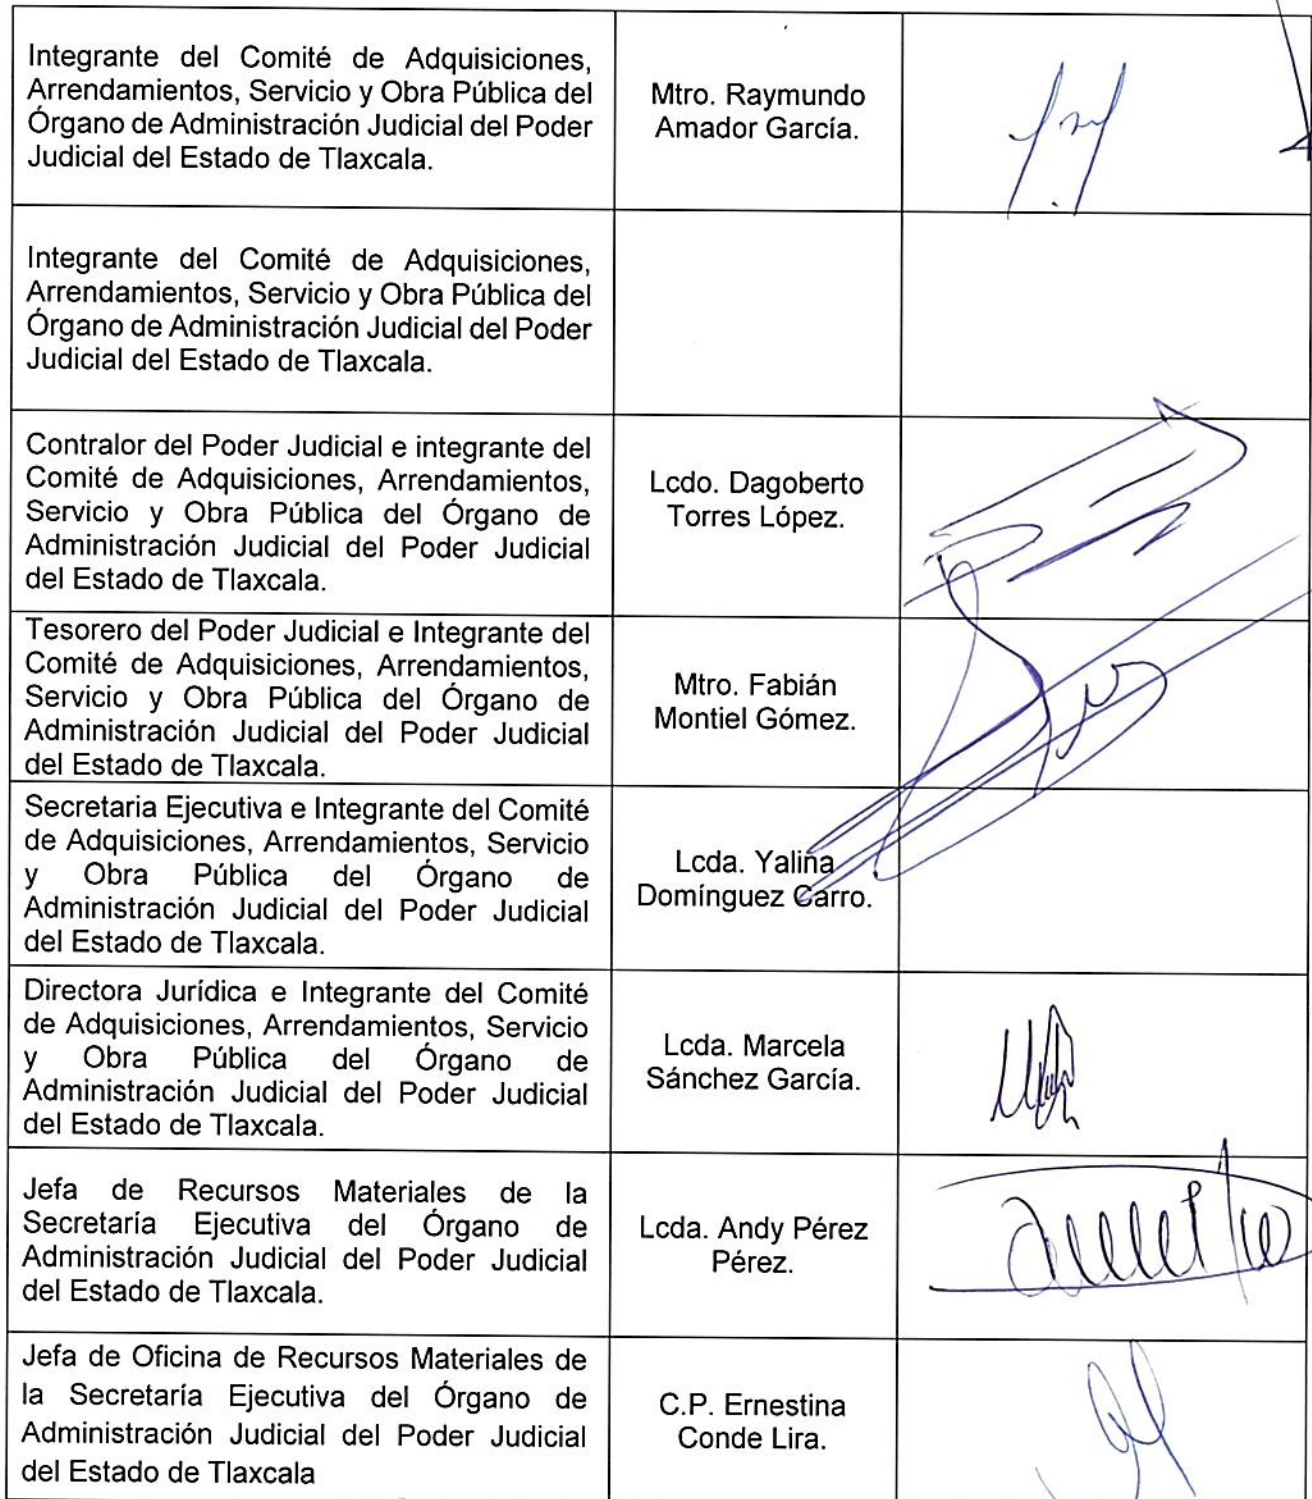 Integrante del Comité de Adquisiciones,
Arrendamientos, Servicio y Obra Pública del
Órgano de Administración Judicial del Poder
Judicial del Estado de Tlaxcala.
Mtro. Raymundo
Amador García.
Integrante del Comité de Adquisiciones,
Arrendamientos, Servicio y Obra Pública del
Órgano de Administración Judicial del Poder
Judicial del Estado de Tlaxcala.
Contralor del Poder Judicial e integrante del
Comité de Adquisiciones, Arrendamientos,
Servicio y Obra Pública del Órgano de
Administración Judicial del Poder Judicial
del Estado de Tlaxcala.
Lcdo. Dagoberto
Torres López.
Tesorero del Poder Judicial e Integrante del
Comité de Adquisiciones, Arrendamientos,
Servicio y Obra Pública del Órgano de
Administración Judicial del Poder Judicial
del Estado de Tlaxcala.
Mtro. Fabián
Montiel Gómez.
Secretaria Ejecutiva e Integrante del Comité
de Adquisiciones, Arrendamientos, Servicio
y Obra Pública del Órgano de
Administración Judicial del Poder Judicial
del Estado de Tlaxcala.
Lcda. Yalina
Domínguez Carro.
Directora Jurídica e Integrante del Comité
de Adquisiciones, Arrendamientos, Servicio
y Obra Pública del Órgano de
Administración Judicial del Poder Judicial
del Estado de Tlaxcala.
Lcda. Marcela
Sánchez García.
Jefa de Recursos Materiales de la
Secretaría Ejecutiva del Órgano de
Administración Judicial del Poder Judicial
del Estado de Tlaxcala.
Lcda. Andy Pérez
Pérez.
Jefa de Oficina de Recursos Materiales de
la Secretaría Ejecutiva del Órgano de
Administración Judicial del Poder Judicial
del Estado de Tlaxcala
C.P. Ernestina
Conde Lira.